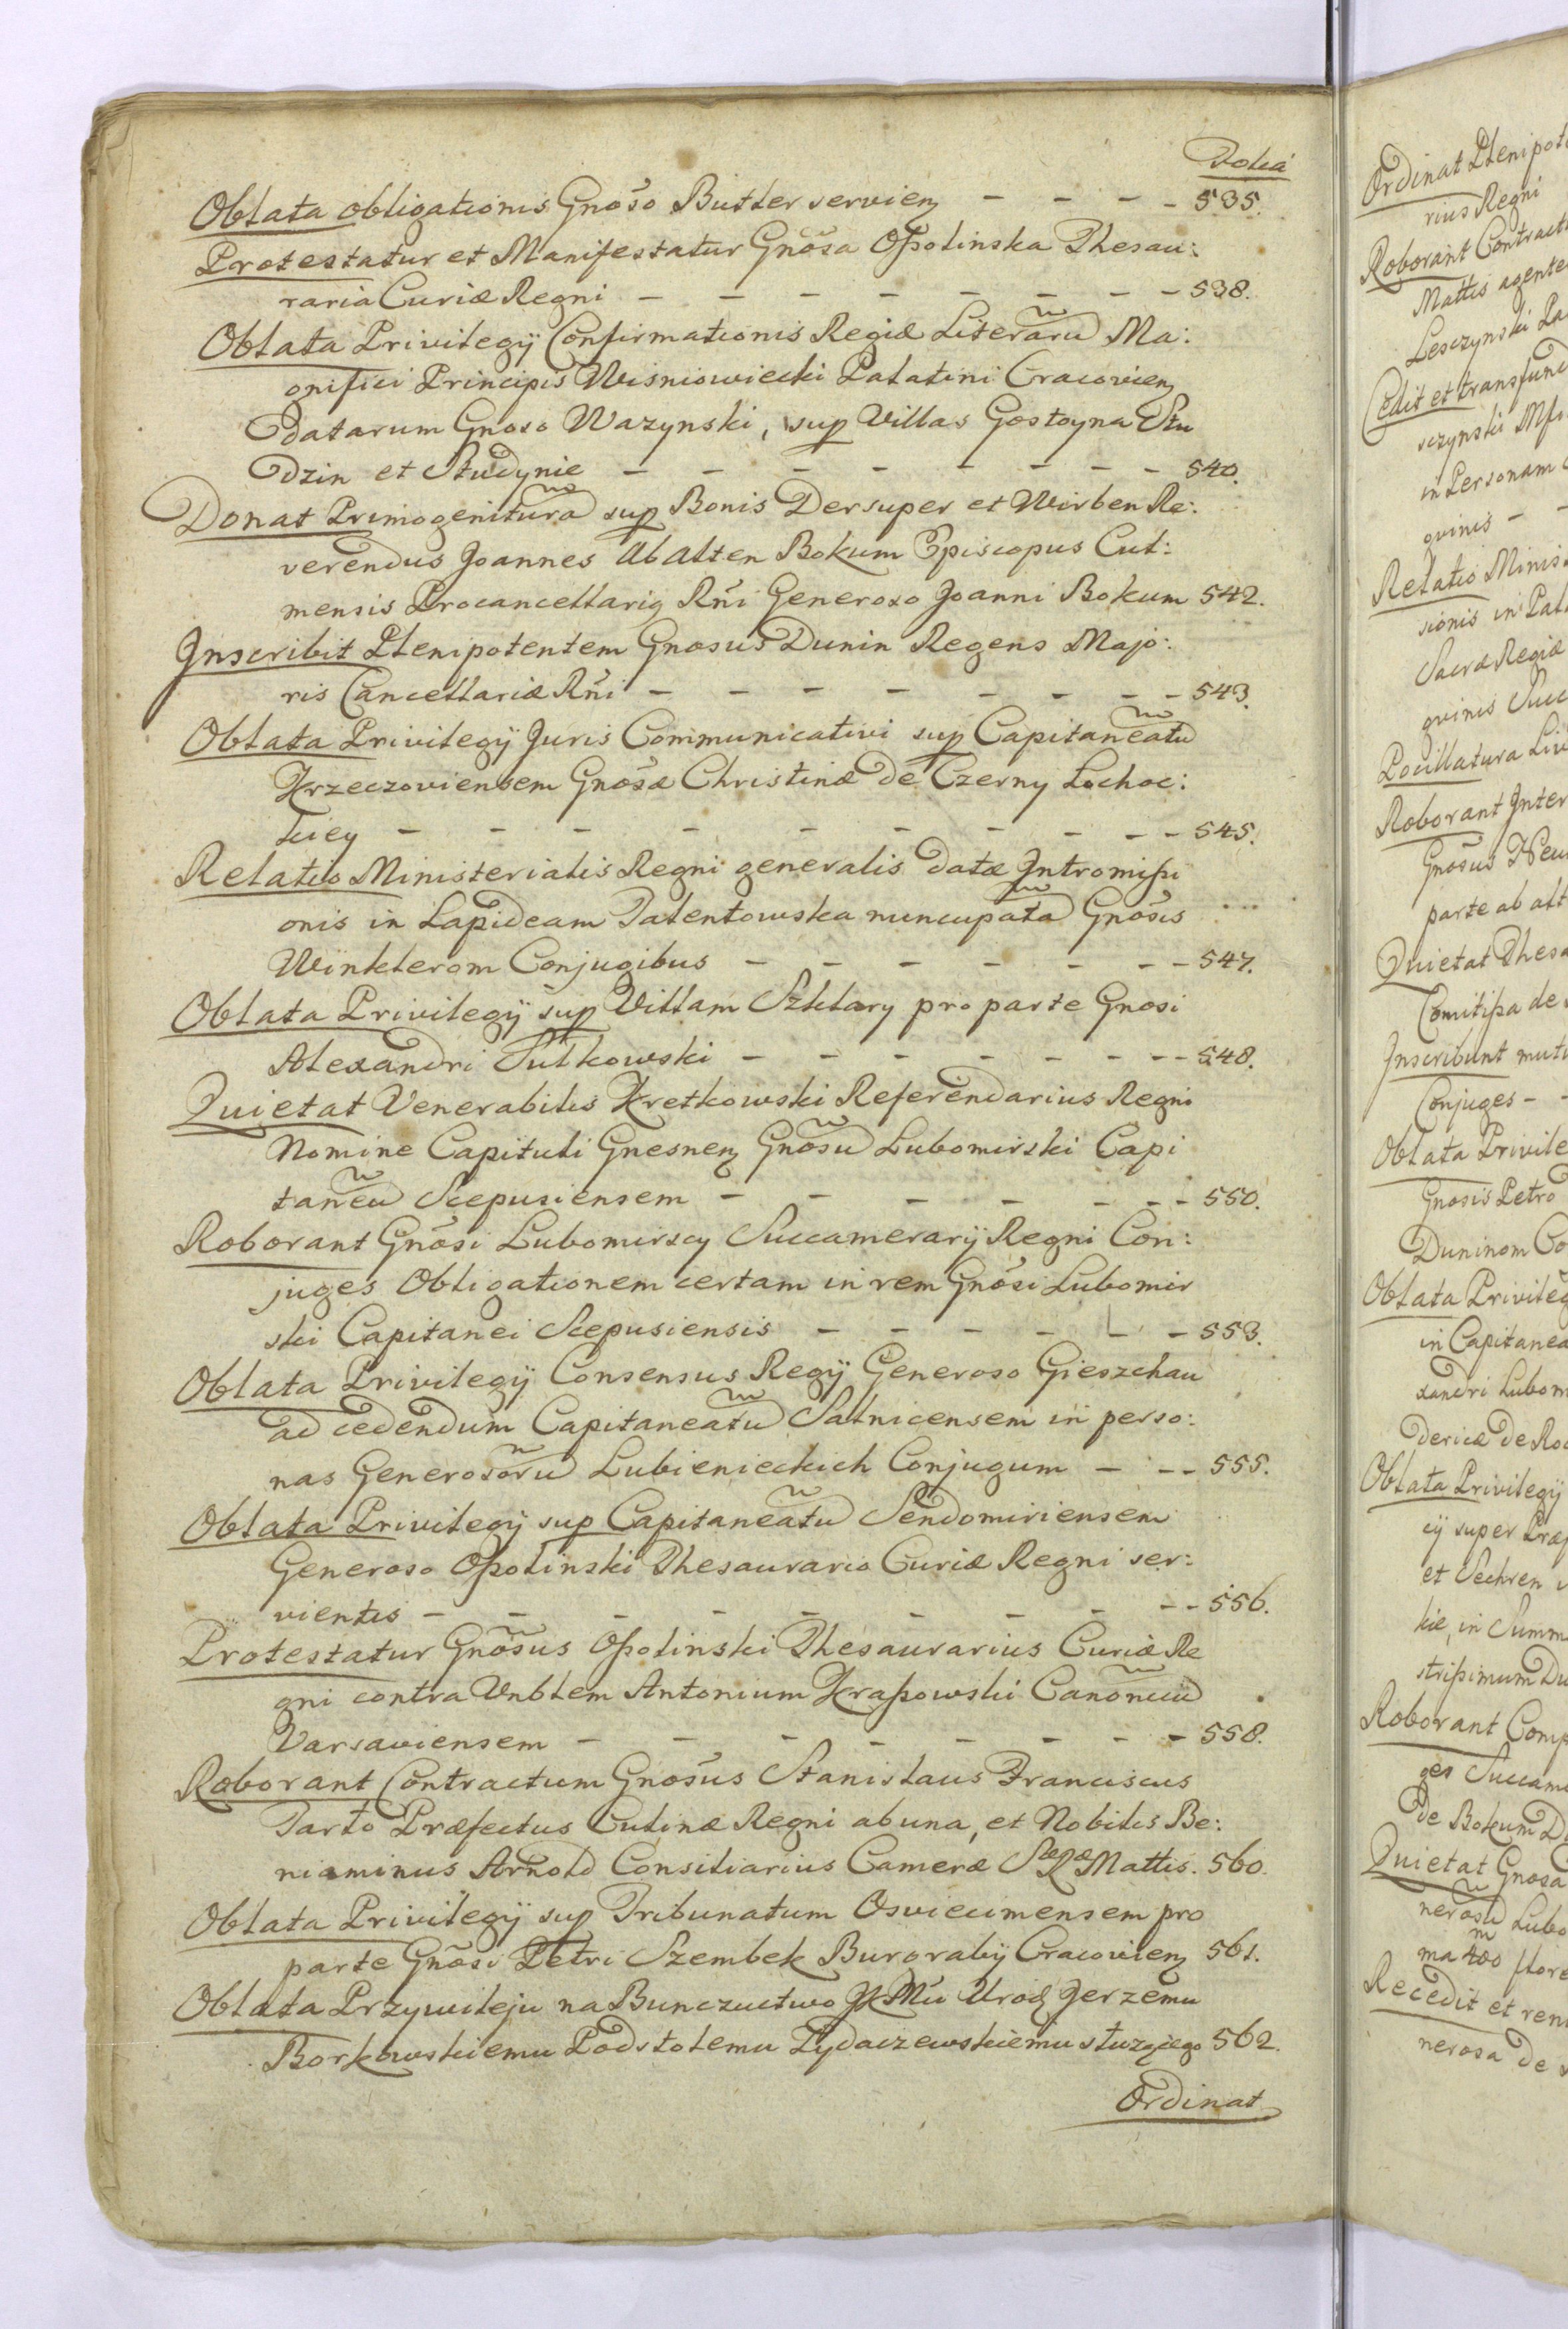 Folia
Oblata obligationis Gnõso Butler servien̄ - - - - 535.
Protestatur et Manifestatur Gnõsa Ossolinska Thesau:
raria Curiæ Regni - - - - - - - - 538.
Oblata Privilegÿ Confirmationis Regiæ Literarũ Ma:
gnifici Principis Wisniowiecki Palatini Cracovien̄
datarum Gnoso Wazynski, sup Villas Gostoyna Stu
dzin et Studynie - - - - - - - - 540.
Donat Primogenitura sup Bonis Dersuper et Wirben Re:
verendus Joannes Ab Alten Bokum Episcopus Cul:
mensis Procancellarig Rñi Generoso Joanni Bokum 542.
Inscribit Plenipotentem Gnosus Dunin Regens Majo:
ris Cancellariæ Rñi - - - - - - - - 543.
Oblata Privilegÿ Juris Communicativi sup Capitaneatũ
Krzeczoviensem Gnõsæ Christinæ de Czerny Lochoc:
kiey - - - - - - - - - - 545.
Relatio Ministerialis Regni generalis datæ Intromissi
onis in Lapideam Talentowska nuncupatã Gnõsis
Winklerom Conjugibus - - - - - - - 547.
Oblata Privilegÿ sup Villam Szklary pro parte Gnosi
Alexandri Sulkowski - - - - - - - - 548.
Quietat Venerabilis Kretkowski Referendarius Regni
Nomine Capituli Gnesnen̄ Gnõsũ Lubomirski Capi
taneũ Scepusiensem - - - - - - - 550.
Roborant Gnõsi Lubomirscy Succamerarÿ Regni Con:
juges Obligationem certam in rem Gnõsi Lubomir
ski Capitanei Scepusiensis - - - - - - 553.
Oblata Privilegÿ Consensus Regÿ Generoso Gieszchau
ad cedendum Capitaneatũ Salnicensem in perso:
nas Generosorũ Lubienieckich Conjugum - - - 555.
Oblata Privilegÿ sup Capitaneatũ Sendomiriensem
Generoso Ossolinski Thesaurario Curiæ Regni ser:
vientis - - - - - - - - - - 556.
Protestatur Gnõsus Ossolinski Thesaurarius Curiæ Re
gni contra Vnblem Antonium Krassowski Canonicũ
Varsaviensem - - - - - - - - 558.
Roborant Contractum Gnõsus Stanislaus Franciscus
Tarło Præfectus Culinæ Regni ab una, et Nobilis Be:
niaminus Arnold Consiliarius Cameræ Sæ Ræ Mattis. 560.
Oblata Privilegÿ sup Tribunatum Osviecimensem pro
parte Gnõsi Petri Szembek Burgrabÿ Cracovien̄ 561.
Oblata Przywileju na Bunczuctwo JKMci Urodz Jerzemu
Borkowskiemu Podstolemu Zydaczewskiemu służącego 562.
Ordinat
Ordinat Plenipot
rius Regni
Roborant Contract
Mattis agente
Lesczynski Pa
Cedit et transfund
sczynski
in Personam
gvinis - -
Relatio Minis
sionis in Pal
Sacræ Regiæ
gvinis Succ
Pocillatura Liv
Roborant Inter
Gnõsus
parte ab alt
Quietat Thesa
Comitissa de
Inscribunt mutu
Conjuges - -
Oblata Privile
Gnosis Petro
Duninom Co
Oblata Privileg
in Capitanea
xandri Lubom
dericæ de Ro
Oblata Privilegÿ
cÿ super Præf
et Sechren
kie, in Summ
strissimum Du
Roborant Comp
ges Succam
de Bokum D
Quietat Gnosa
nerosũ Lubo
ma 400 flore
Recedit et ren
nerosa de